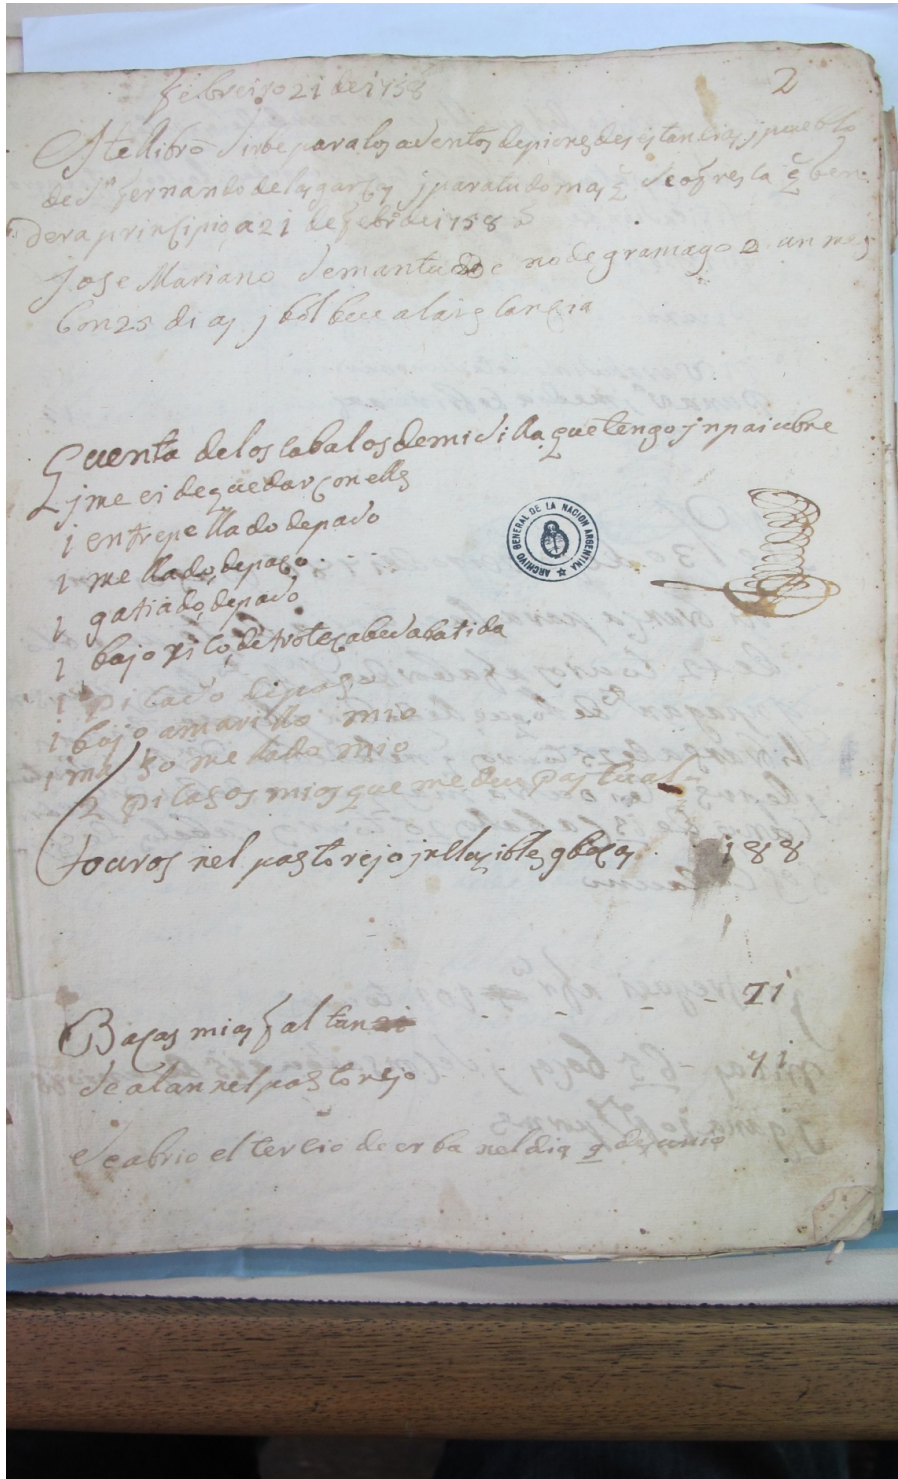 febreiro 21 de 1758
2
Ste llibro sirbe para los asentos de piones de es estancias j pueblo
de Sn fernando de las garsas j para tudo mas q̃ se ofresca q̃ ben
dera prinsipio a 21 de febro de 1758
Jose Mariano no de gramago 2 un mes
Con 25 dias j bolbeu a la estansia
Quenta de los cabalos de mi silla que tengo jn paiubre
j me ei de quedar con ellos
1 entrepellado de paso
1 mellado de paso
1 gatiado de paso
1 bajo pico de trote cabesa batida
1 picaso de paso
1 bajo amarillo mio
1 ma melado mio
2 picasos mios que me deu pascual
touros nel pastorejo 188
Bacas mias faltan 71
Se alan nel pastorejo 41
Se abrio el tercio de erba nel dia 9 de junio
ARCHIVO GENERAL DE LA NACION ARGENTINA